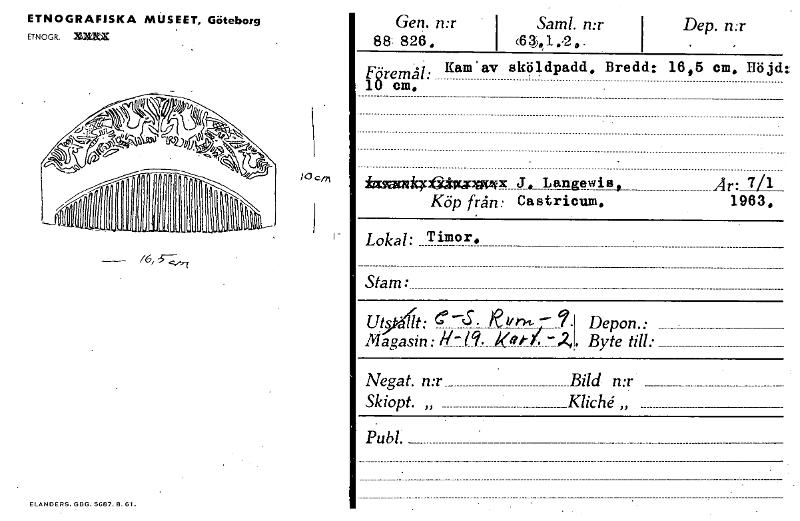 ETNOGRAFISKA MUSEET, Göteborg
ETNOGR.
10 cm
16,5 cm
ELANDERS. GBG. 5687. 8. 61.
Gen. n:r Saml. n:r Dep. n:r
88 826. 63.1.2.
Föremål: Kam av sköldpadd. Bredd: 16,5 cm. Höjd:
10 cm.
J. Langewis, År: 7/1
Köp från: Castricum. 1963.
Lokal: Timor.
Stam:
Utställt: C-S. Rum,-9. Depon.:
Magasin: H-19. Kart.-2. Byte till:
Negat. n:r Bild n:r
Skiopt. „ Kliché „
Publ.